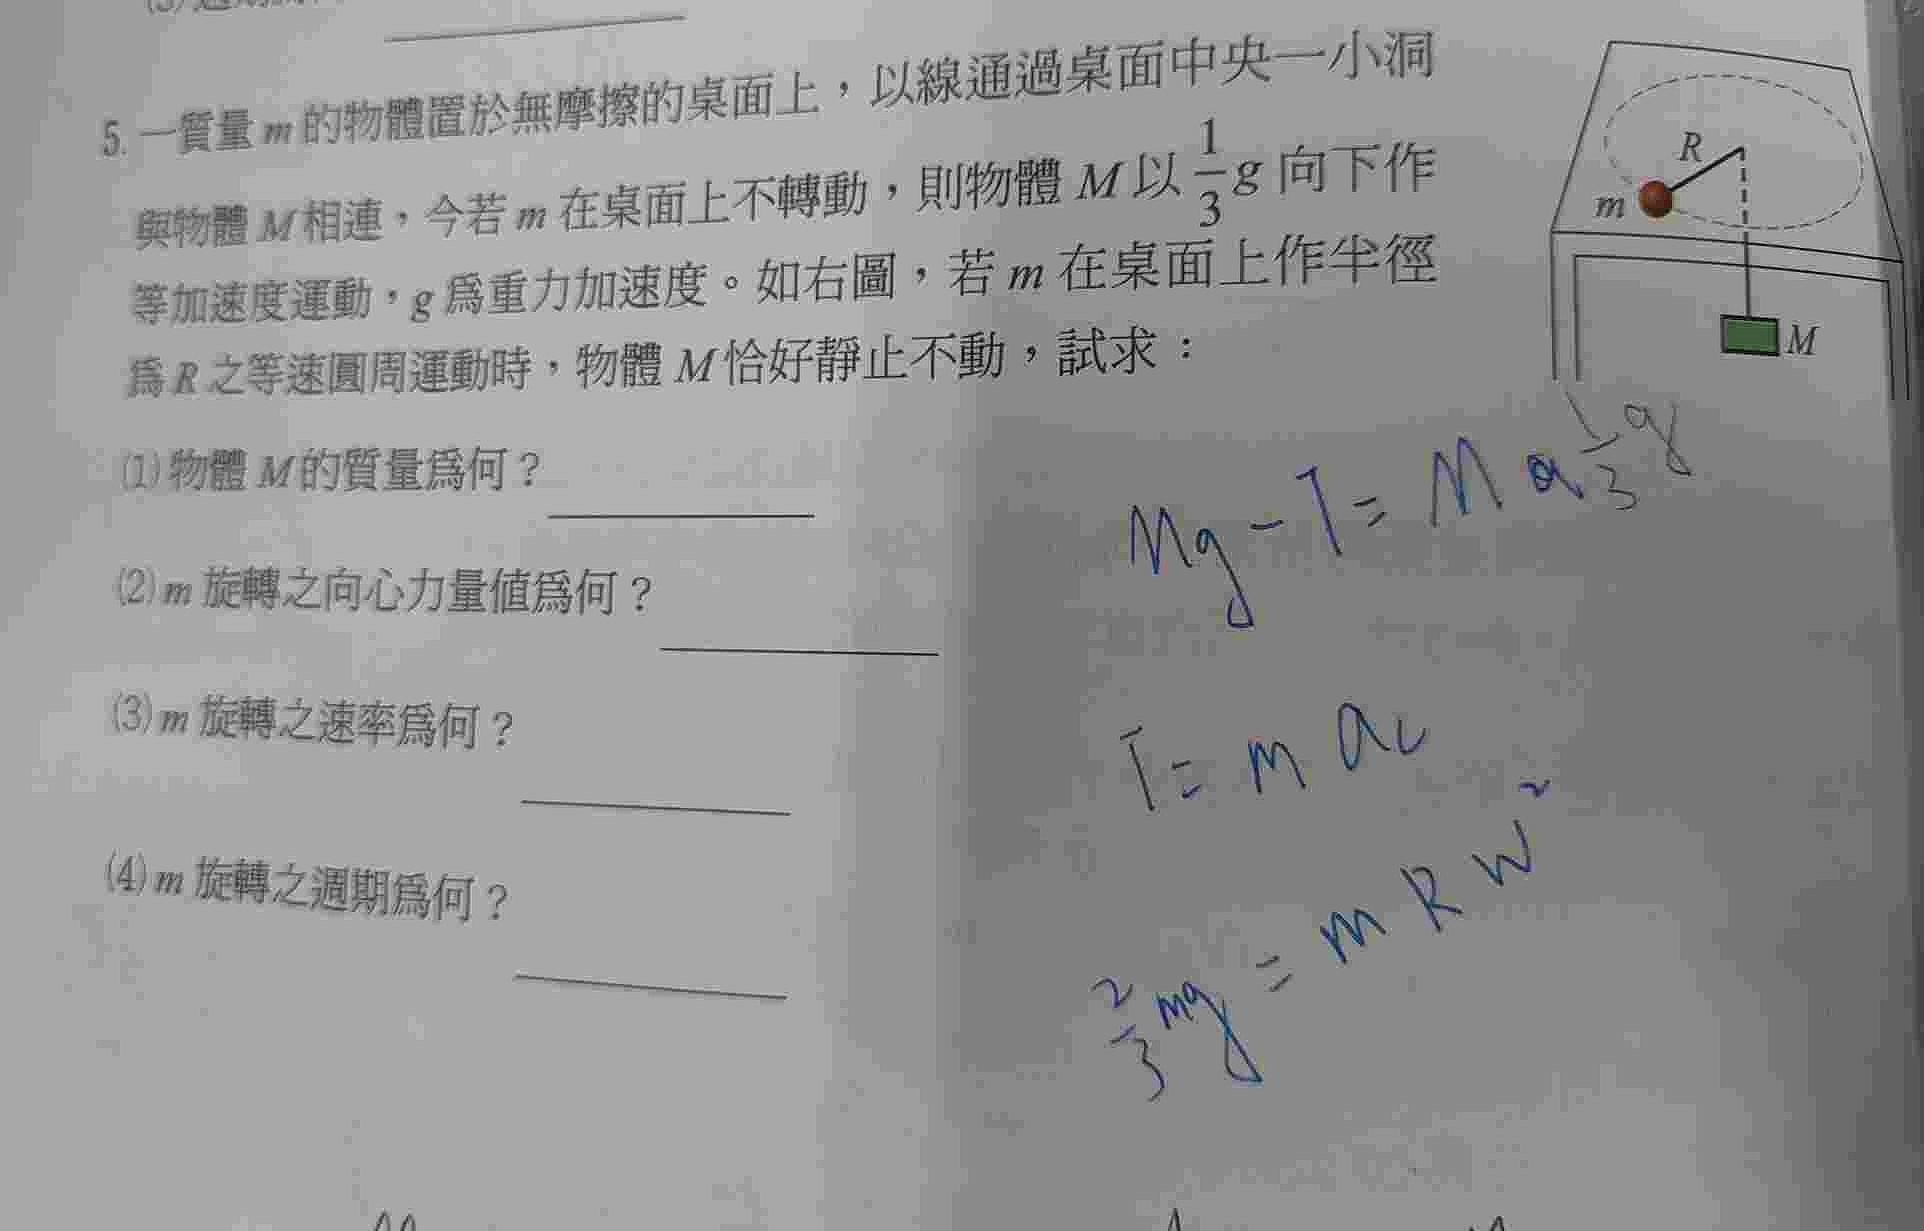 5. 一質量 m 的物體置於無摩擦的桌面上，以線通過桌面中央一小洞
與物體 M 相連，今若 m 在桌面上不轉動，則物體 M 以 1/3 g 向下作
等加速度運動，g 為重力加速度。如右圖，若 m 在桌面上作半徑
為 R 之等速圓周運動時，物體 M 恰好靜止不動，試求：
(1) 物體 M 的質量為何？
(2) m 旋轉之向心力量值為何？
(3) m 旋轉之速率為何？
(4) m 旋轉之週期為何？
R
m
M
Mg - T = M a 1/3 g
T = m ac
2/3 mg = m R W²